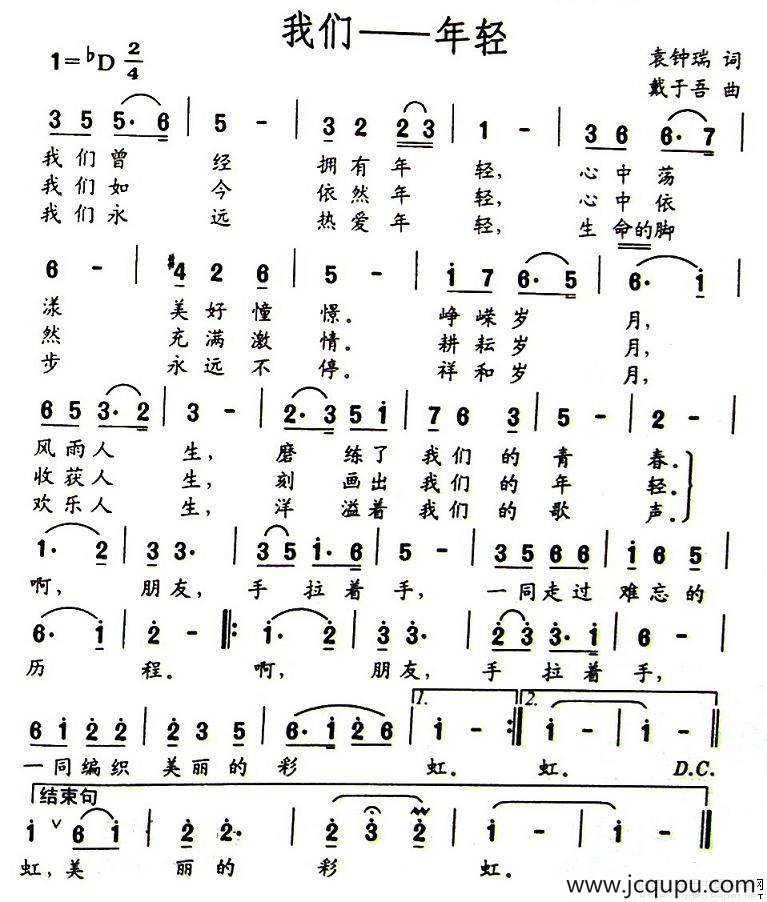 我们——年轻
1=♭D 2/4
袁钟瑞 词
戴于吾 曲
3 5 5· 6 | 5 - | 3 2 2 3 | 1 - | 3 6 6· 7 |
我们曾 经 拥有年 轻, 心中荡
我们如 今 依然年 轻, 心中依
我们永 远 热爱年 轻, 生命的脚
6 - | #4 2 6 | 5 - | i 7 6· 5 | 6· i |
漾 美好憧 憬。 峥嵘岁 月,
然 充满激 情。 耕耘岁 月,
步 永远不 停。 祥和岁 月,
6 5 3· 2 | 3 - | 2· 3 5 i | 7 6 3 | 5 - | 2 - |
风雨人 生, 磨 练了 我们的 青 春。
收获人 生, 刻 画出 我们的 年 轻。
欢乐人 生, 洋 溢着 我们的 歌 声。
1· 2 | 3 3· | 3 5 i· 6 | 5 - | 3 5 6 6 | i 6 5 |
啊, 朋友, 手 拉着 手, 一同走过 难忘的
6· i | 2 - |: i· 2 | 3 3· | 2 3 3· i | 6 - |
历 程。 啊, 朋友, 手 拉着 手,
6 i 2 2 | 2 3 5 | 6· i 2 6 | 1. i - :| 2. i - | i - |
一同编织 美丽的 彩 虹。 虹。 D.C.
结束句
i ∨ 6 i | 2 2· | 2 3 2 | i - | i - ‖
虹,美 丽的 彩 虹。
www.jcqupu.com